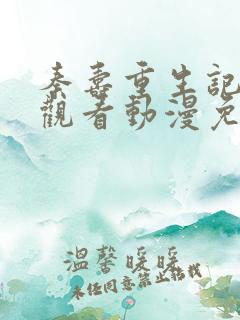 秦壽重生記
觀看動漫免
溫馨暖暖
未经同意禁止转载